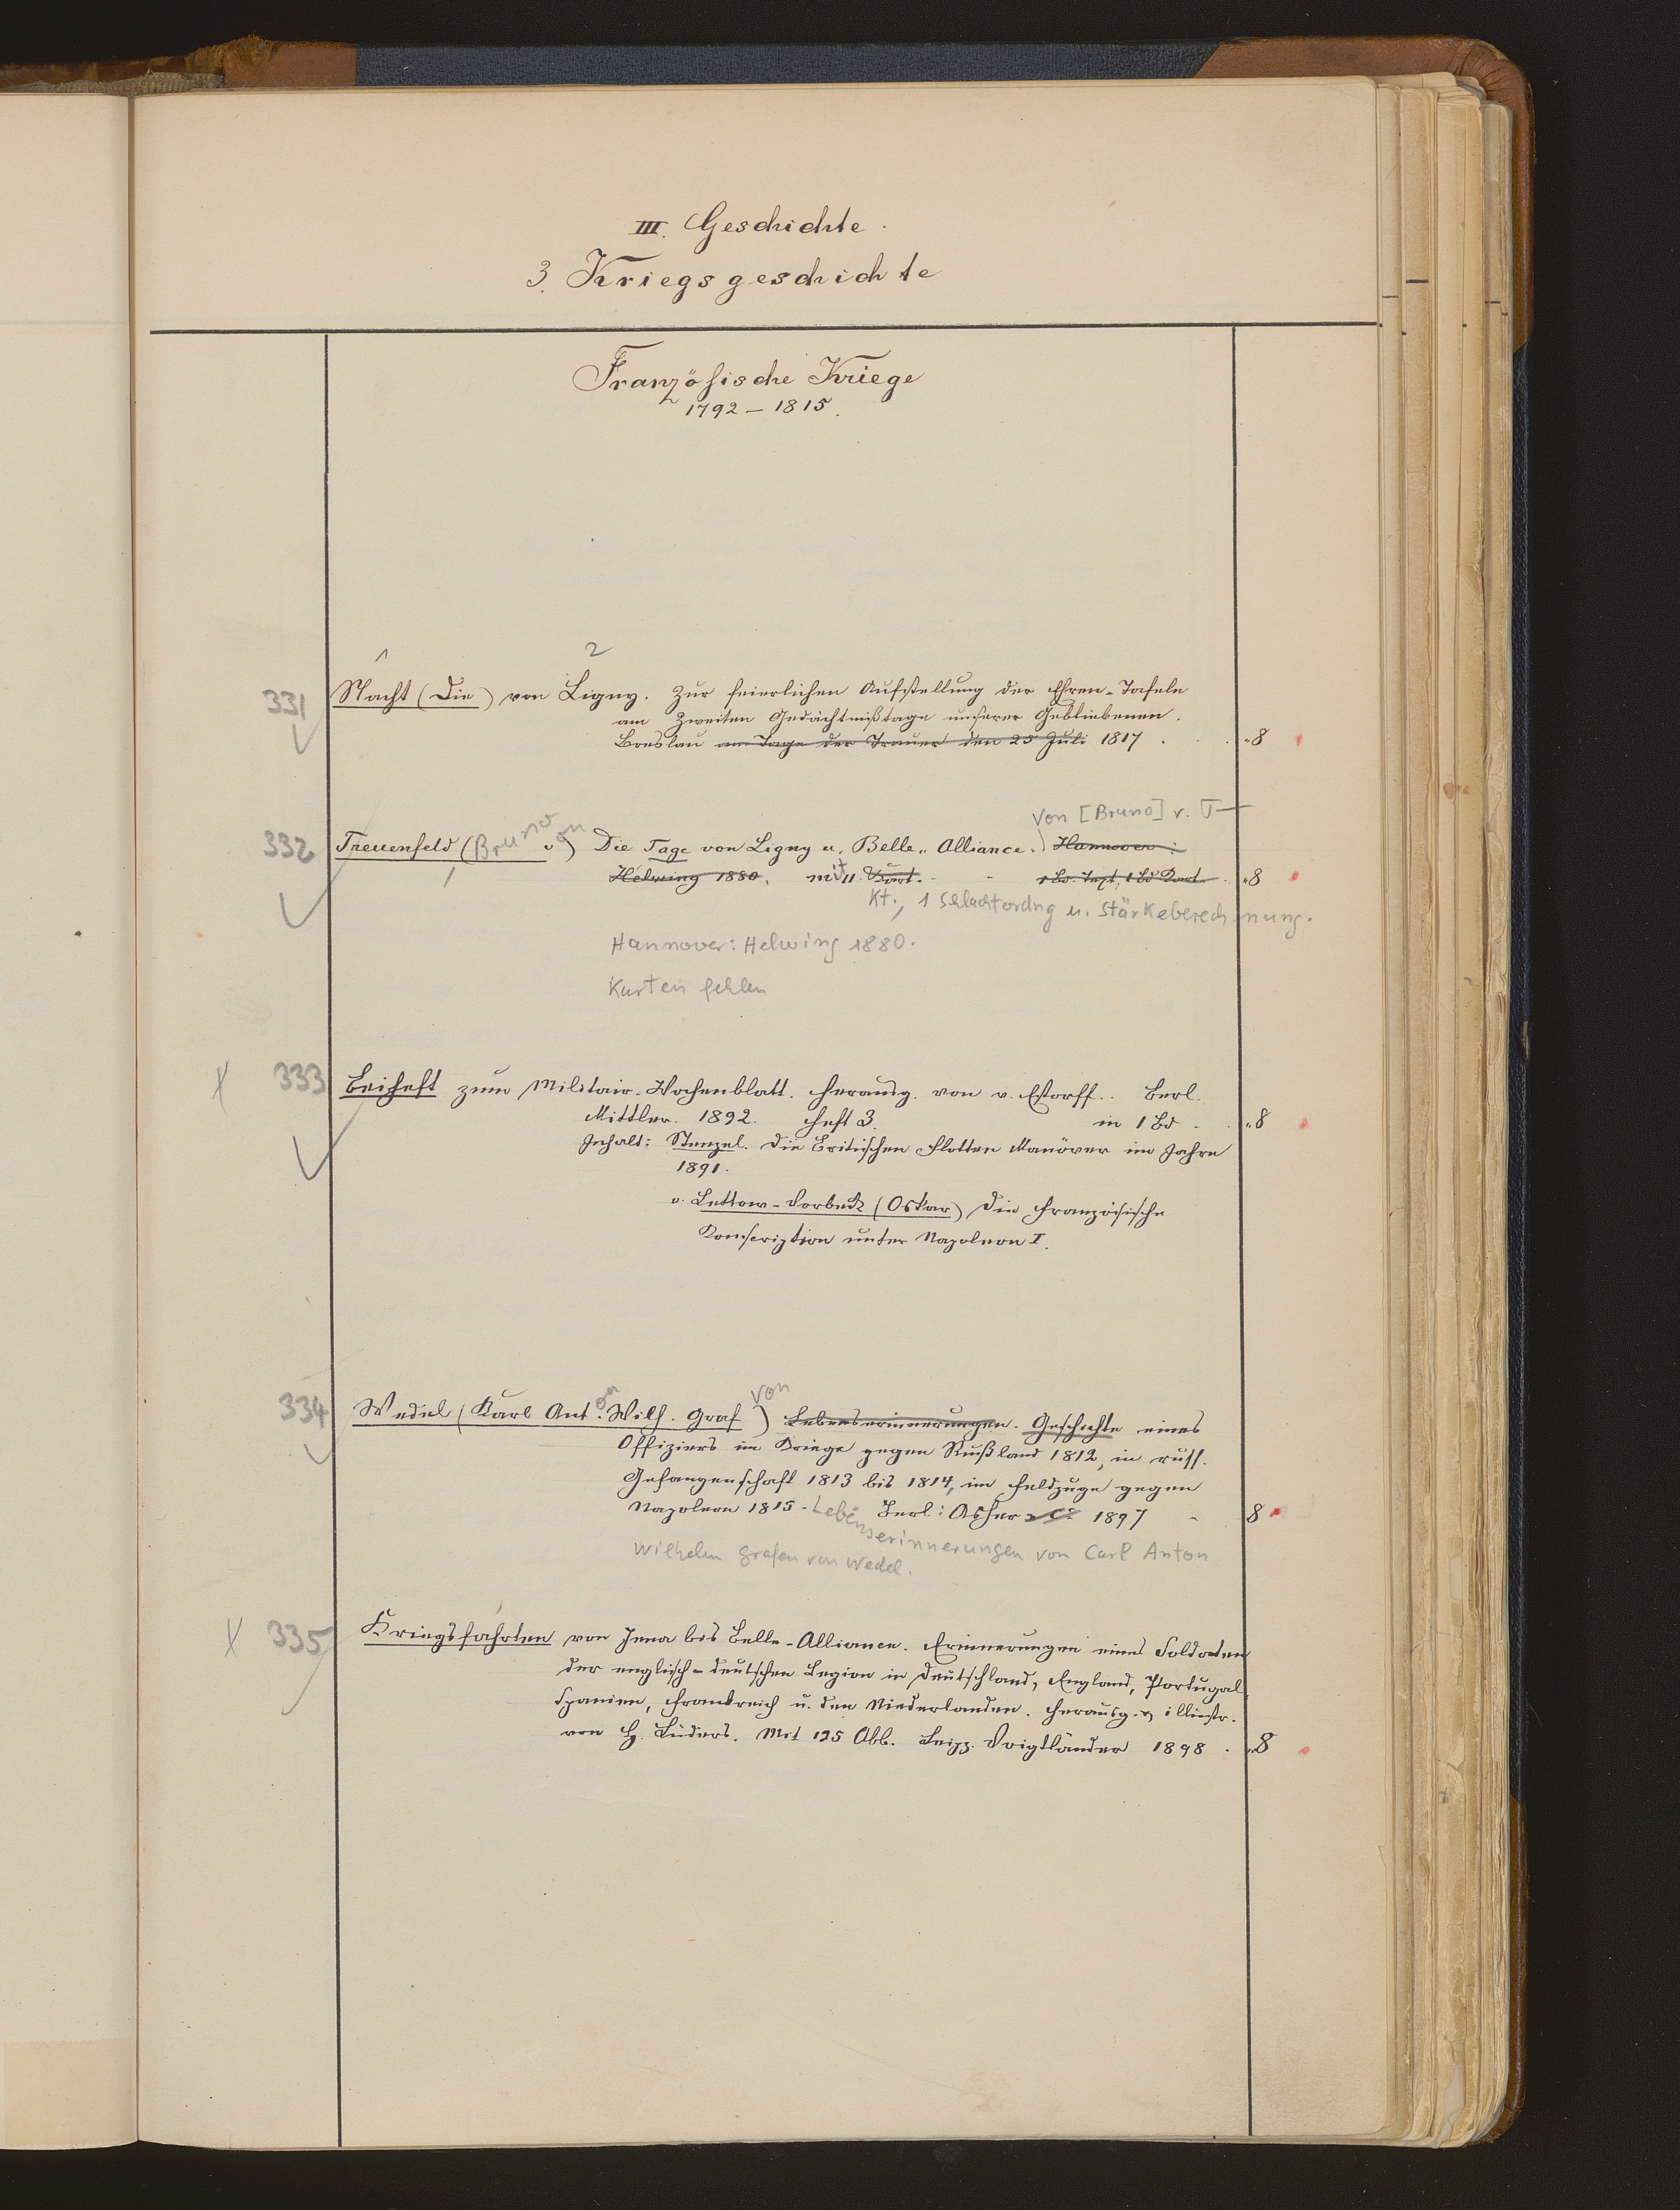 III. Geschichte.
3. Kriegsgeschichte
Französische Kriege
1792 – 1815.
1 2
331 Nacht (Die) von Ligny. Zur feierlichen Aufstellung der Ehren-Tafeln
am Zweiten Gedächtnißtage unserer Gebliebenen.
Breslau am Tage der Trauer den 25 Juli 1817 . . . 8
Von [Bruno] v. T
332 Treuenfeld (Bruno von) Die Tage von Ligny u. Belle-Alliance. Hannover:
Helwing 1880. mit 11 Kart. - - 1 Bd. Text, 1 Bd Kart. . 8
Kt., 1 Schlachtordng u. Stärkeberechnung.
Hannover: Helwing 1880.
Karten fehlen
X 333 Beiheft zum Militair-Wochenblatt. Herausg. von v. Estorff.. Berl.
Mittler. 1892. Heft 3. in 1 Bd . . 8
Inhalt: Stenzel. Die Britischen Flotten Manöver im Jahre
1891.
v. Lettow-Vorbeck (Oskar) Die französische
Konscription unter Napoleon I.
334 Wedel (Karl Anton Wilh. Graf von) Lebenserinnerungen. Geschichte eines
Offiziers im Kriege gegen Rußland 1812, in russ.
Gefangenschaft 1813 bis 1814, im Feldzuge gegen
Napoleon 1815. Berl: Asher & Co 1897 - 8
Lebenserinnerungen von Carl Anton
Wilhelm Grafen von Wedel.
X 335 Kriegsfahrten von Jena bis Belle-Alliance. Erinnerungen eines Soldaten
der englisch-deutschen Legion in Deutschland, England, Portugal,
Spanien, Frankreich u. den Niederlanden. Herausg. u. illustr.
von H. Lüders. Mit 125 Abb. Leipz. Voigtländer 1898 . 8